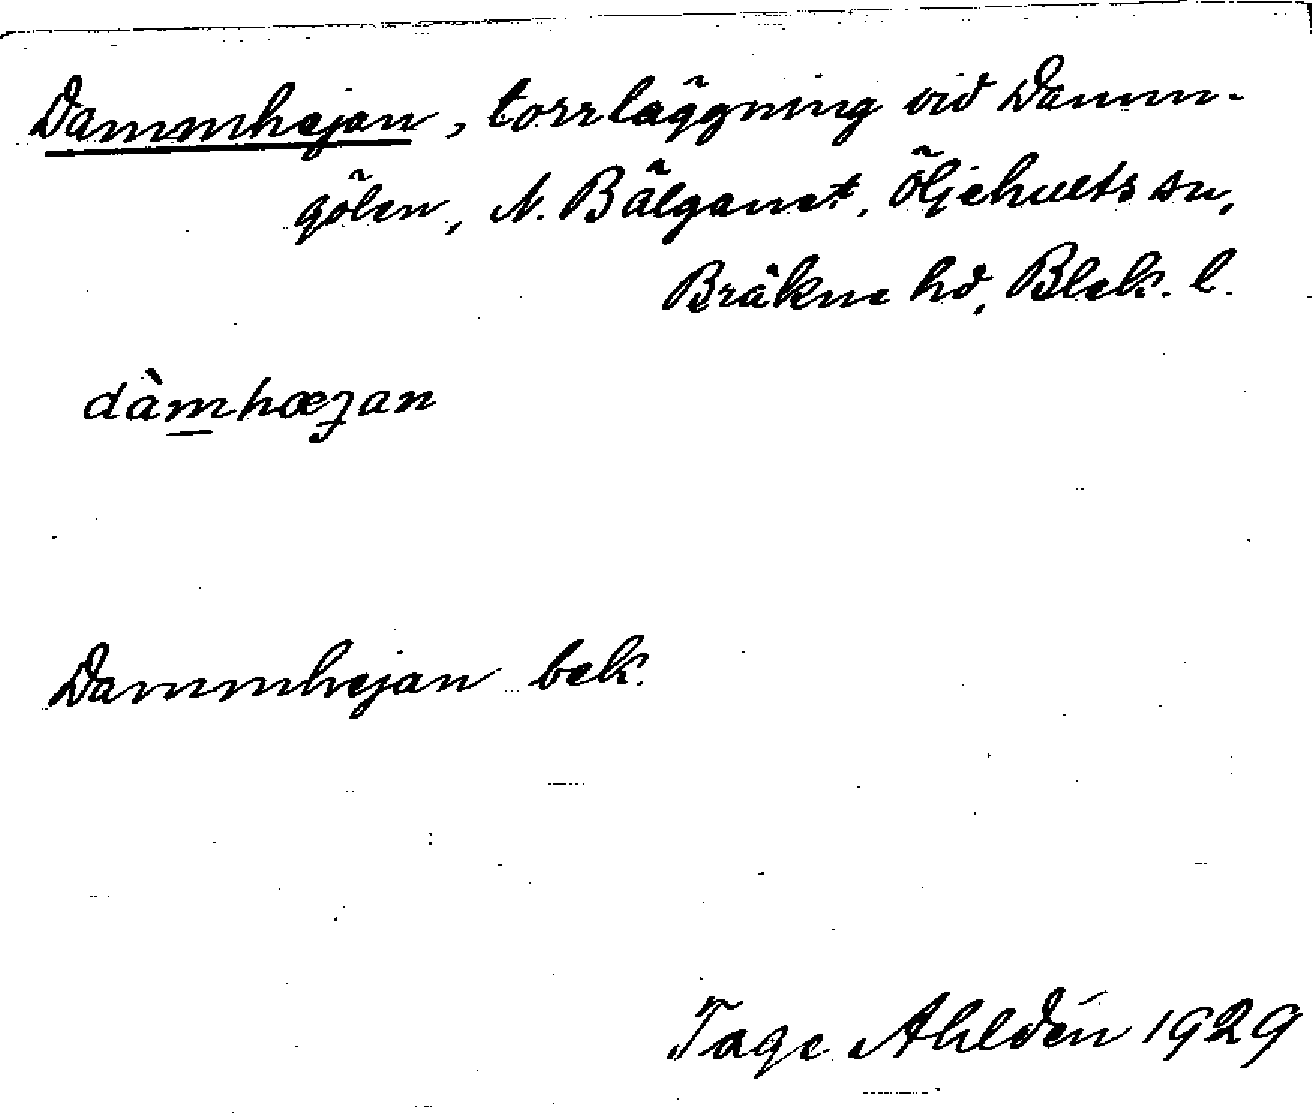 Dammhejan, torrläggning vid Damm-
gölen, N. Bälganet, Öljehults sn,
Bräkne hd, Blek. l.
dàmhæȷan
Dammhejan bek.
Tage Ahldén 1929